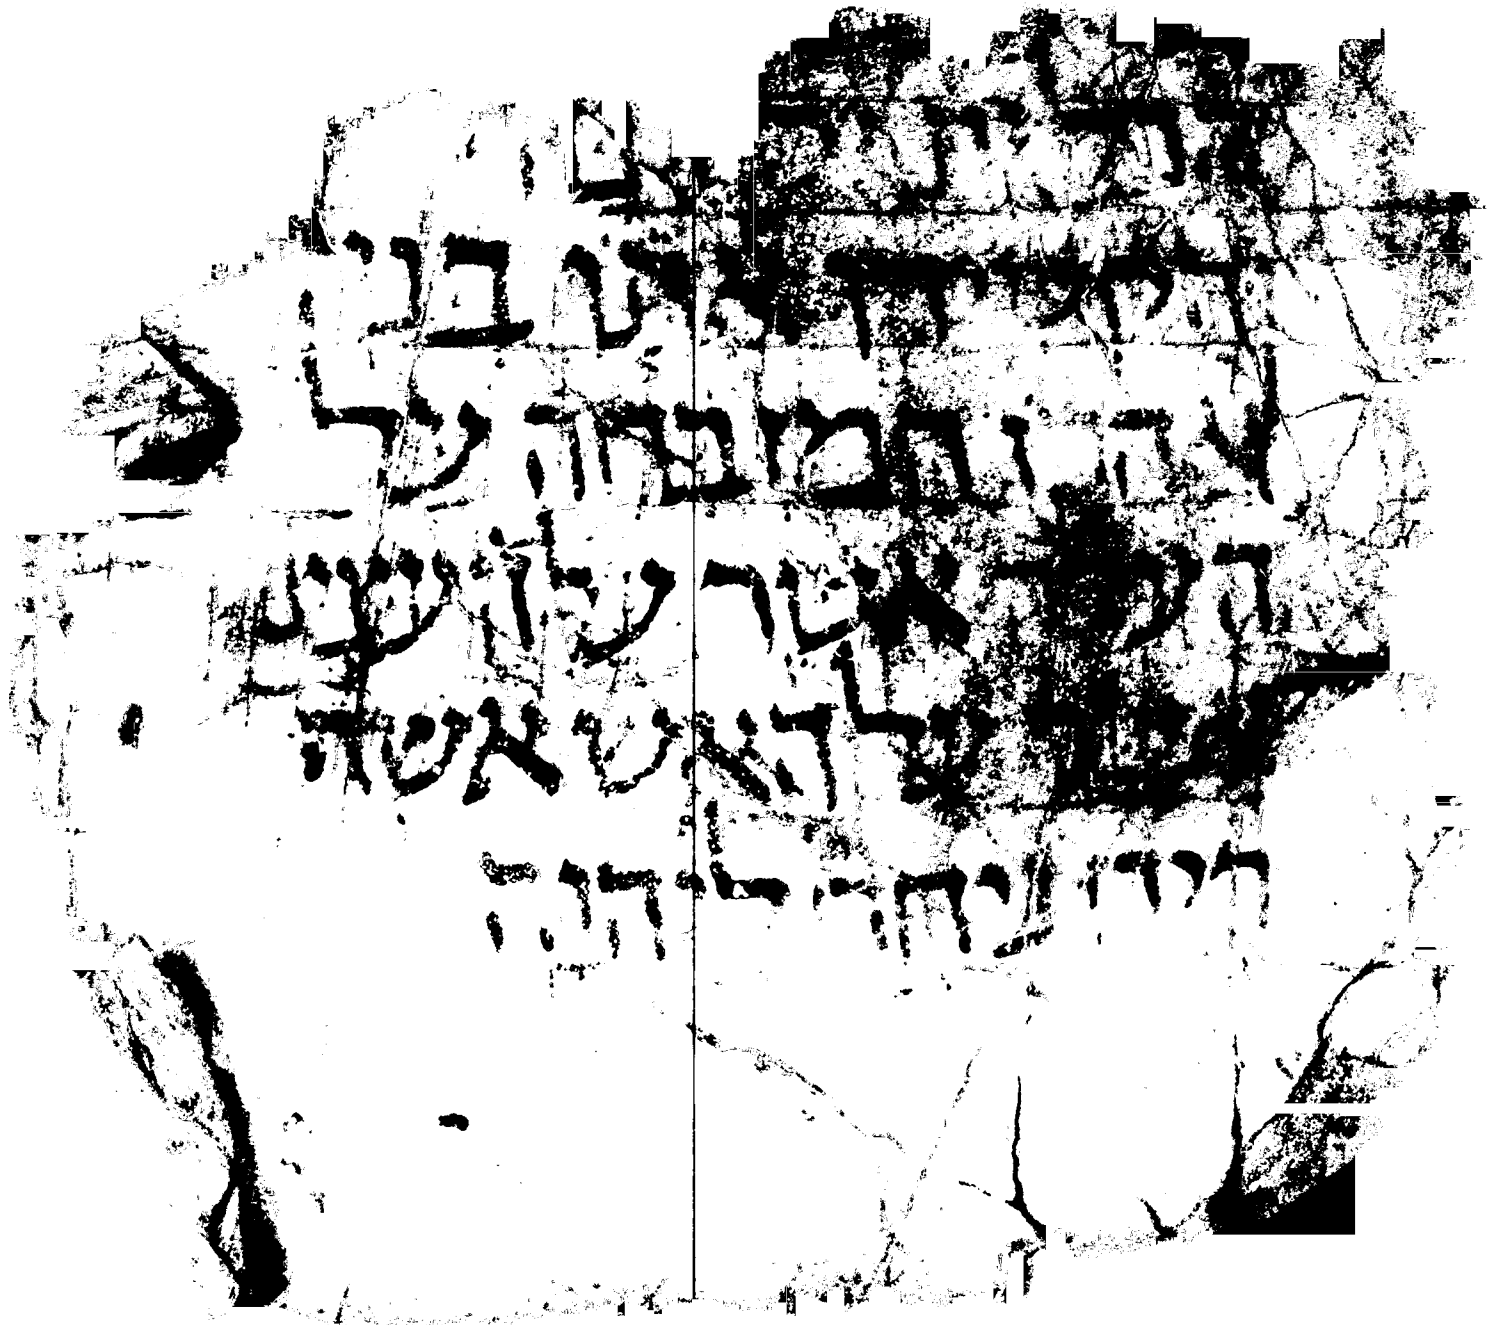 והקטירו אתו בני
אהרן המזבחה על
העלה אשר על העצים
אשר על האש אשה
ריח ניחח ליהוה